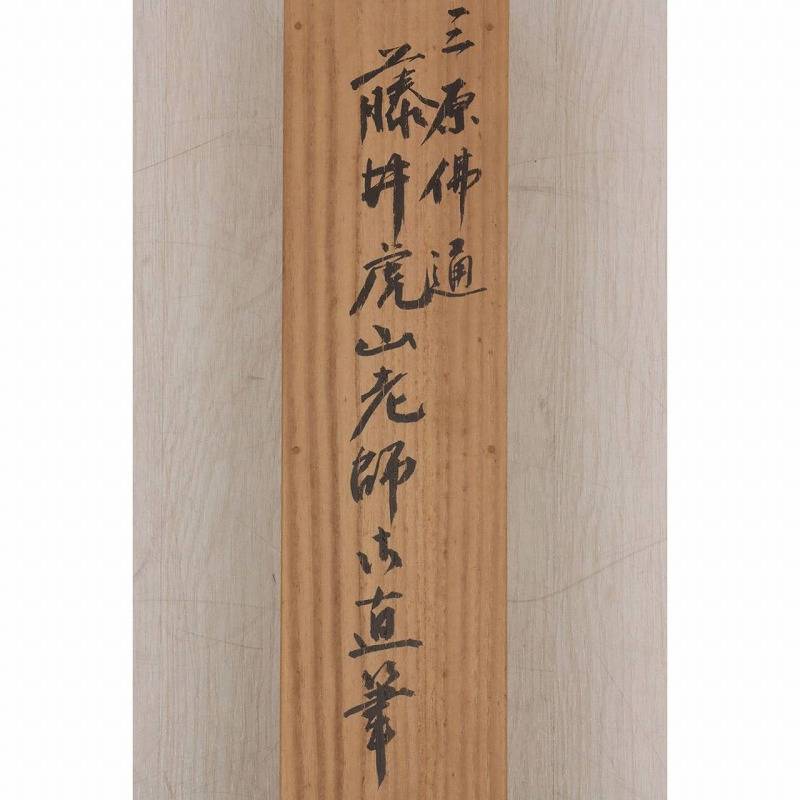 三原佛通
藤井虎山老師御直筆